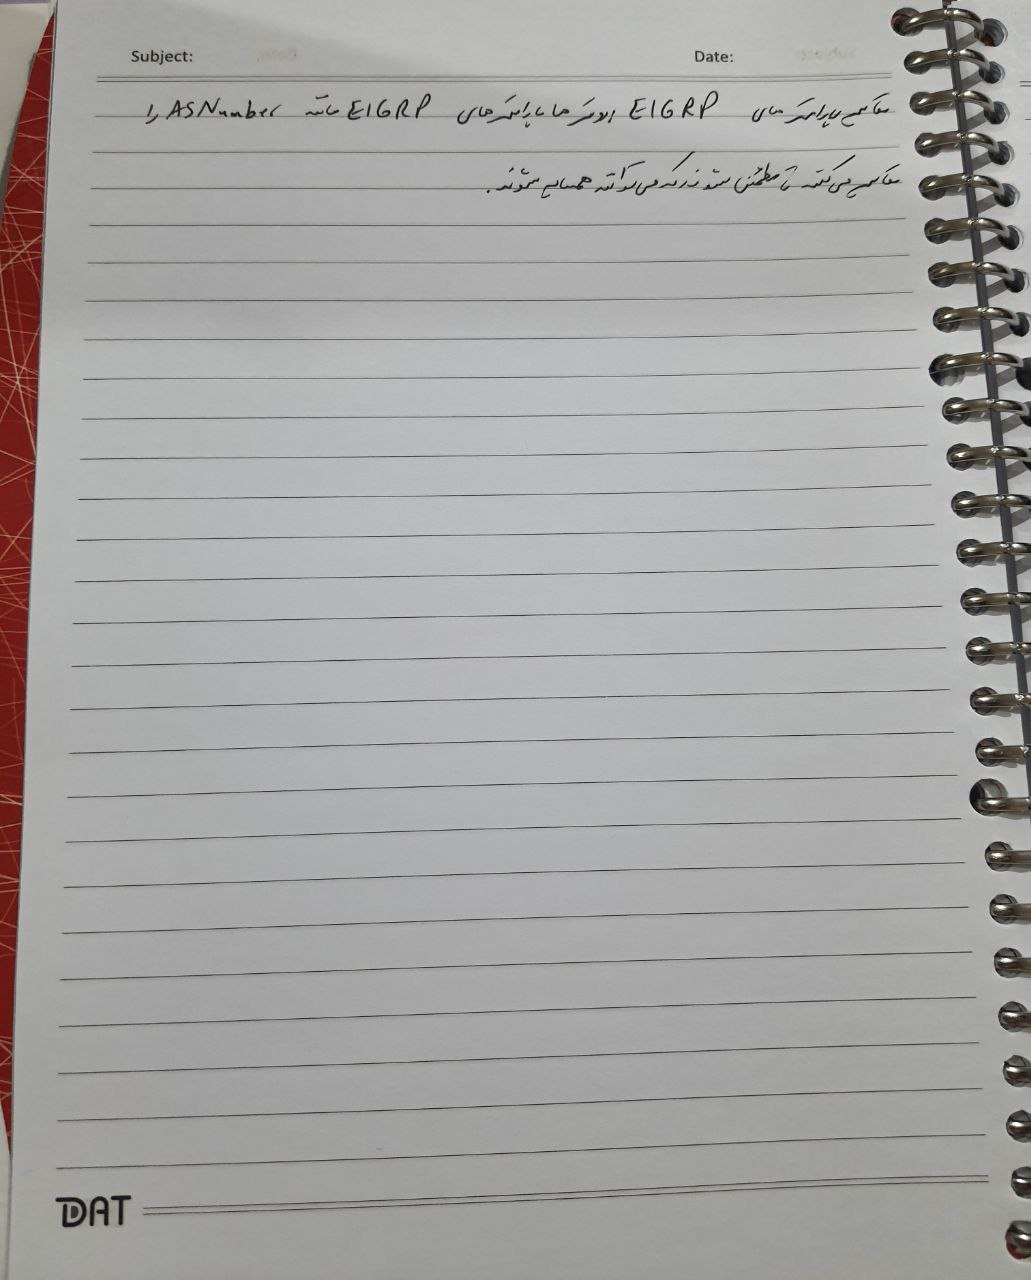 Subject: Date:
مقایسه پارامتر های EIGRP روترها پارامترهای EIGRP مانند AS Number را
مقایسه می‌کنند تا مطمئن شوند که می‌توانند همسایه شوند.
DAT